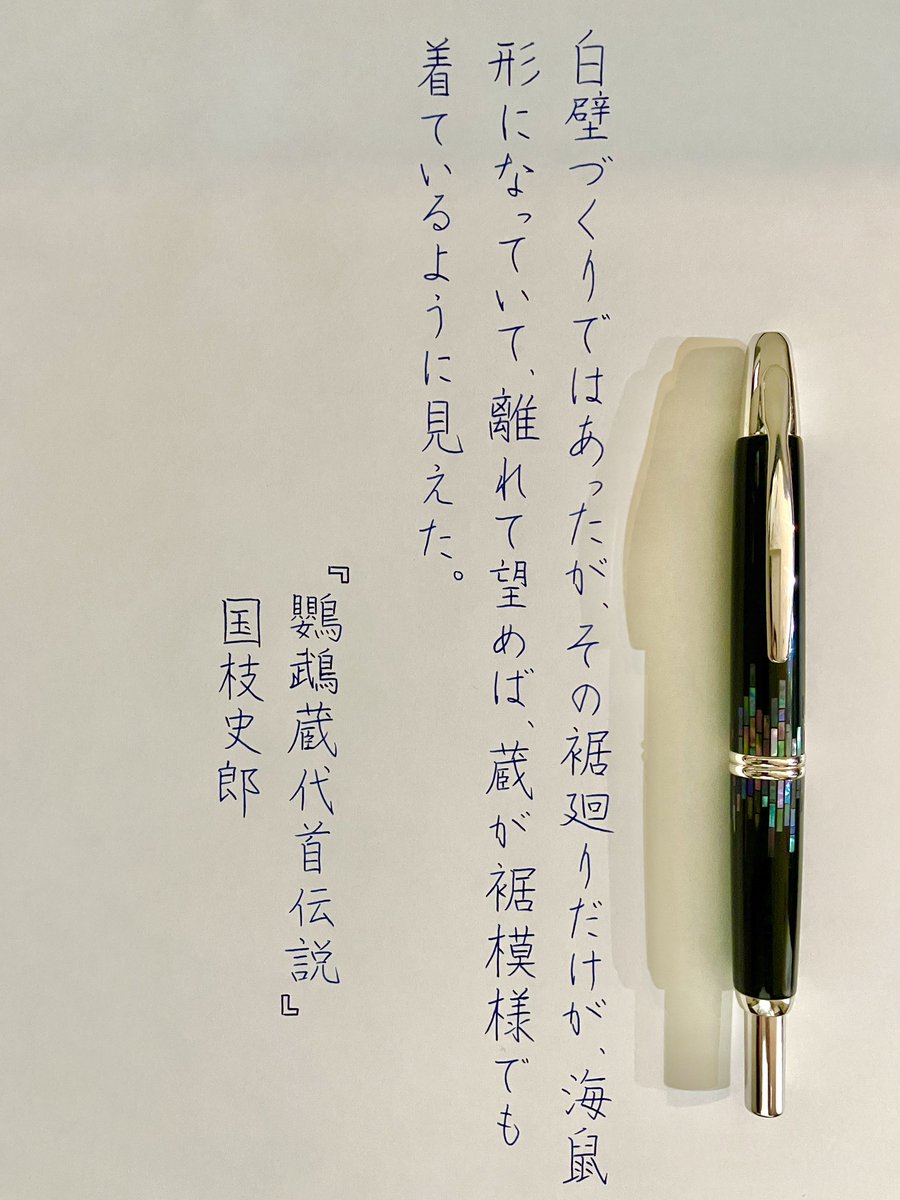 白壁づくりではあったが、その裾廻りだけが、海鼠
形になっていて、離れて望めば、蔵が裾模様でも
着ているように見えた。
『鸚鵡蔵代首伝説』
国枝史郎